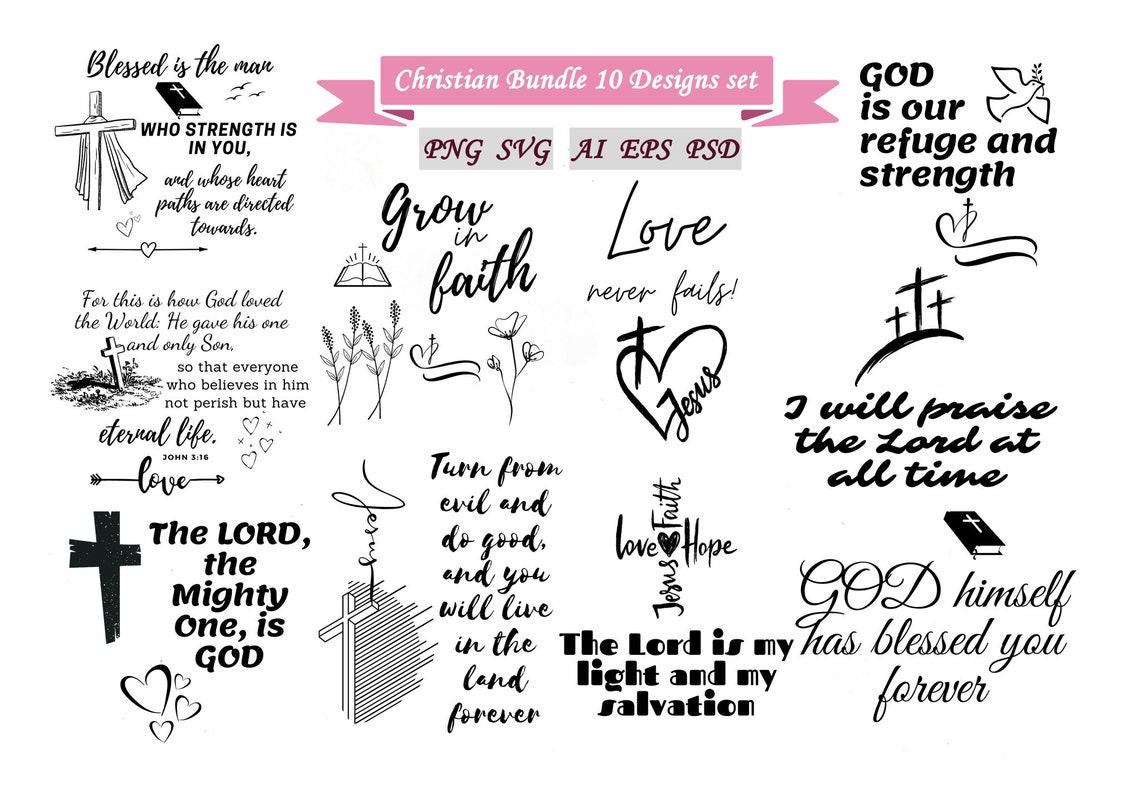 Christian Bundle 10 Designs set
PNG SVG AI EPS PSD
Blessed is the man
WHO STRENGTH IS
IN YOU,
and whose heart
paths are directed
towards.
For this is how God loved
the World: He gave his one
and only Son,
so that everyone
who believes in him
not perish but have
eternal life.
JOHN 3:16
love
The LORD,
the
Mighty
One, is
GOD
Grow
in
faith
Jesus
Turn from
evil and
do good,
and you
will live
in the
land
forever
Love
never fails!
Jesus
Faith
Love Hope
Jesus
The Lord is my
light and my
salvation
GOD
is our
refuge and
strength
I will praise
the Lord at
all time
GOD himself
has blessed you
forever